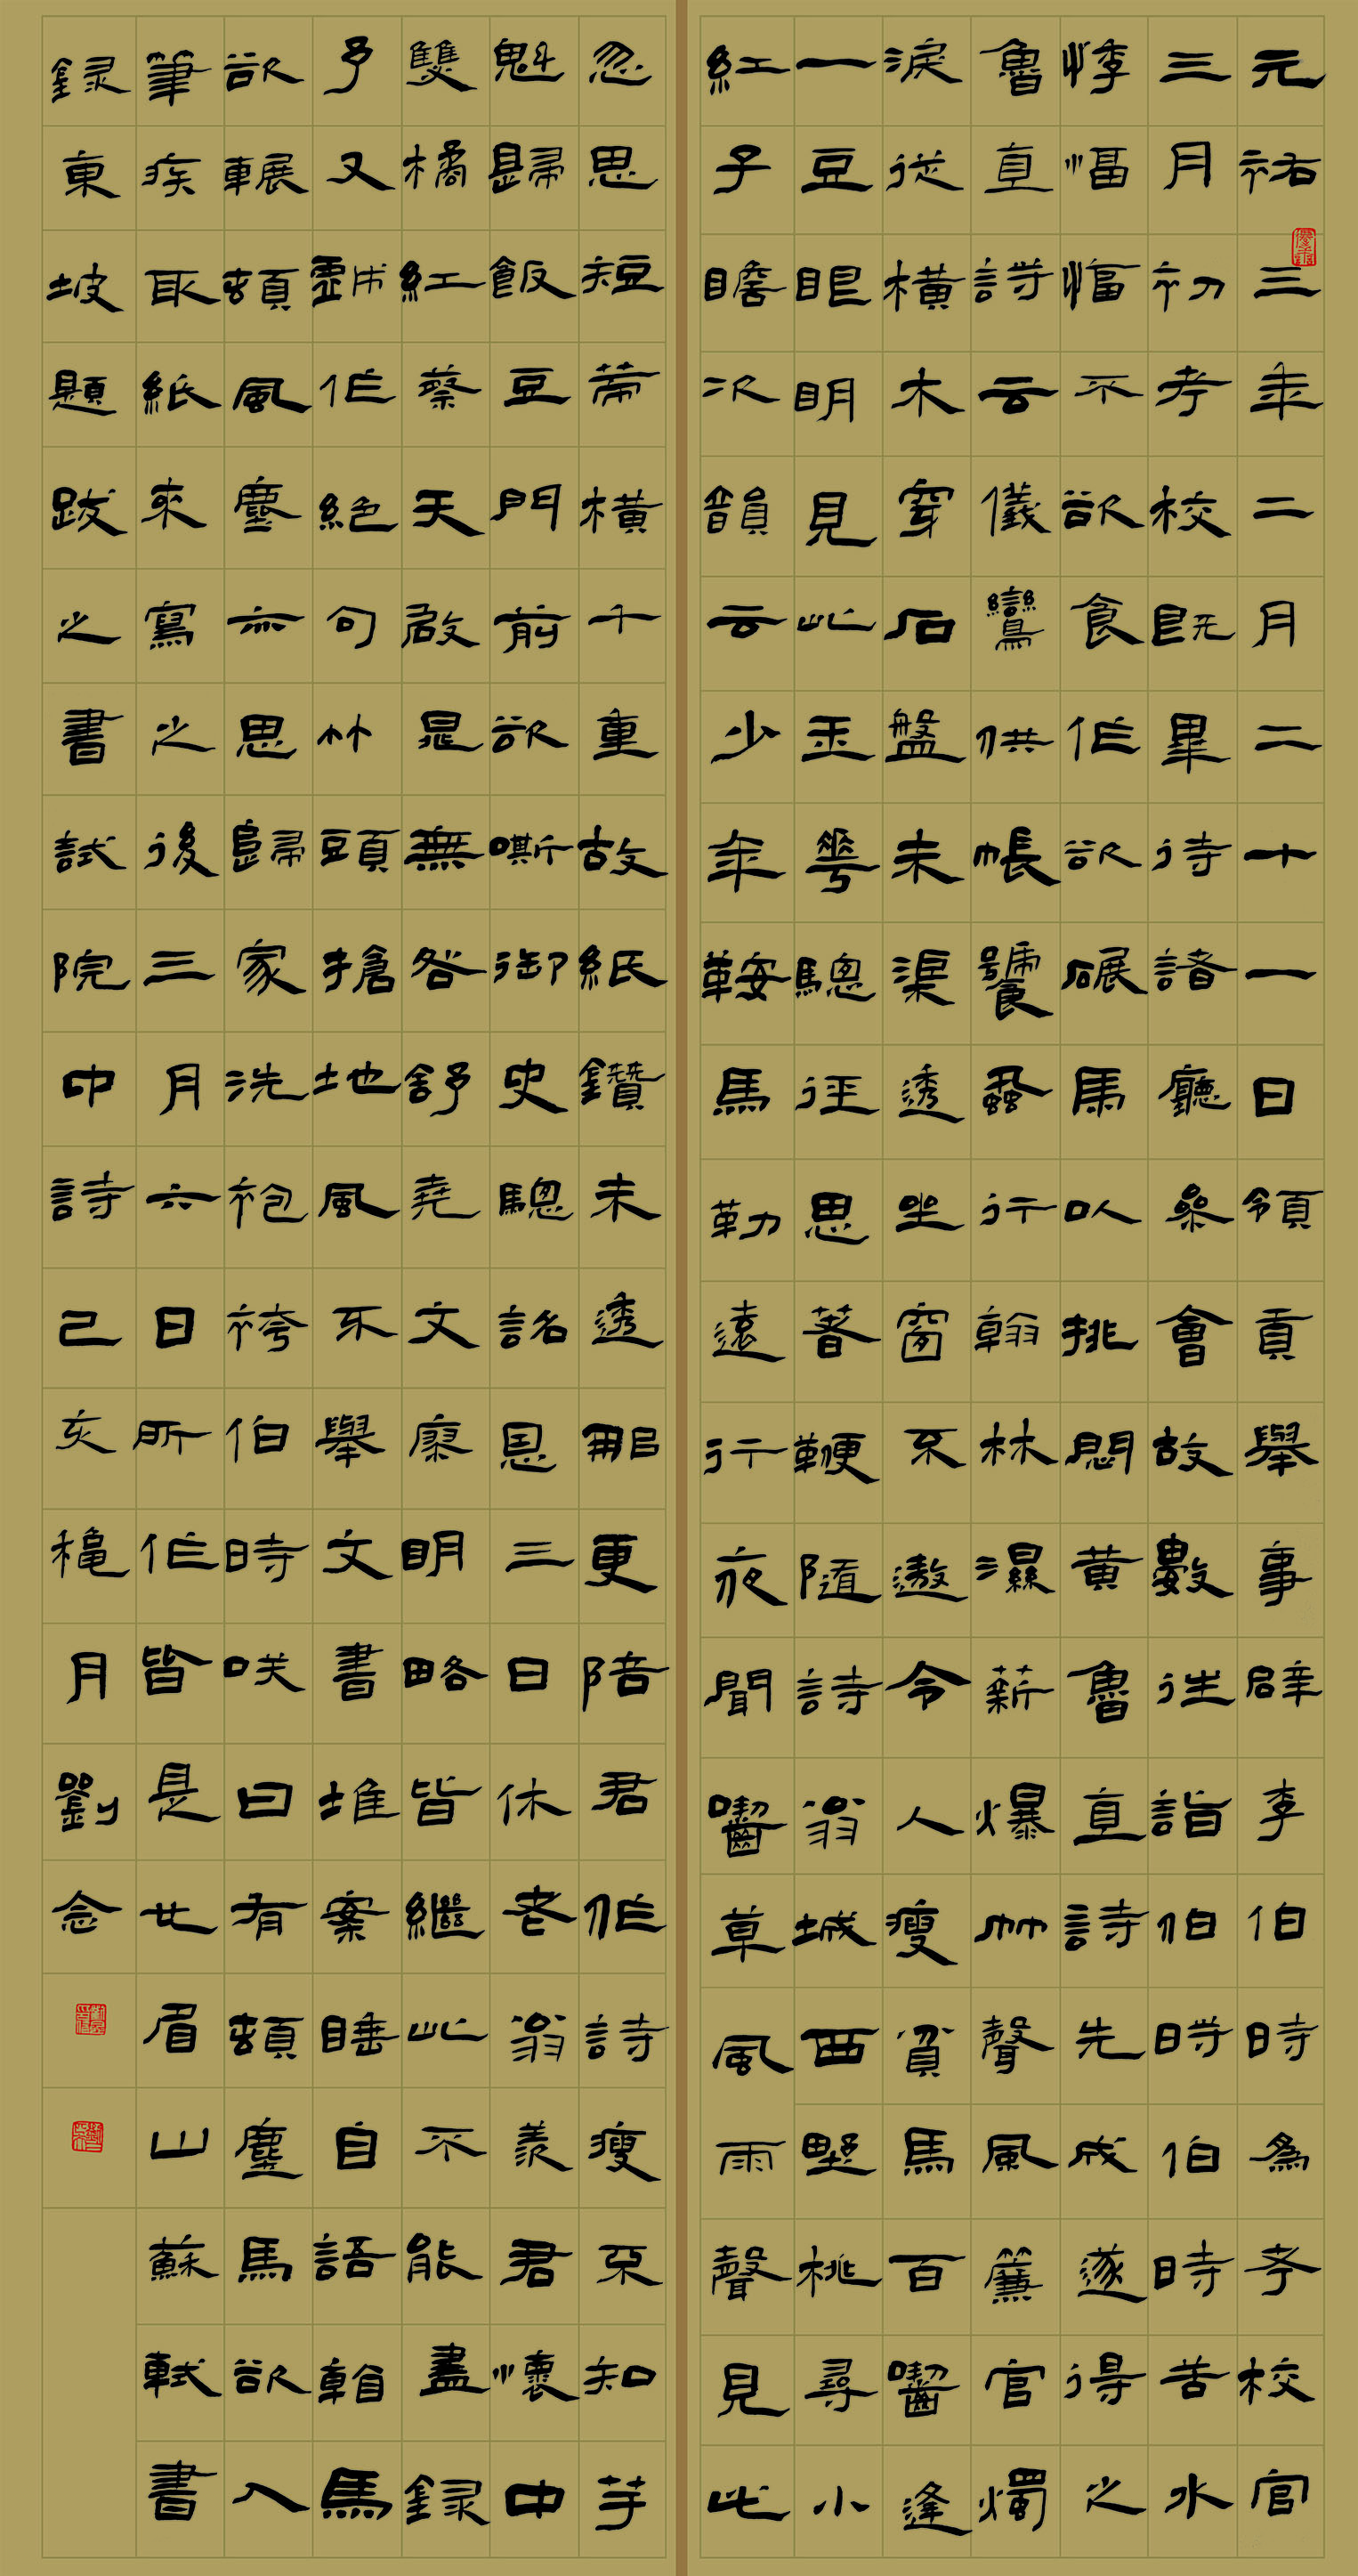 元祐三年二月二十一日領貢舉事辟李伯時為考校官
三月初考校既畢待諸廳參會故數往詣伯時伯時苦水
悸愊愊不欲食作欲碾馬以挑悶黃魯直詩先成遂得之
魯直詩云儀鸞供帳饕蝨行翰林濕薪爆竹聲風簾官燭
淚從橫木穿石盤未渠透坐窗不遨令人瘦貧馬百囓逢
一豆眼明見此玉華驄徑思著鞭隨詩翁城西野桃尋小
紅子瞻次韻云少年鞍馬勒遠行夜聞囓草風雨聲見此
忽思短策橫十重故紙鑽未透那更陪君作詩瘦不知芋
魁歸飯豆門前欲嘶御史驄詔恩三日休老翁羨君懷中
雙橘紅蔡天啟晁無咎舒堯文廖明略皆繼此不能盡錄
予又戲作絕句竹頭搶地風不舉文書堆案睡自語看馬
欲輾頓風塵亦思歸家洗袍袴伯時笑曰有頓塵馬欲入
筆疾取紙來寫之後三月六日所作皆是也眉山蘇軾書
錄東坡題跋之書試院中詩己亥穐月劉念